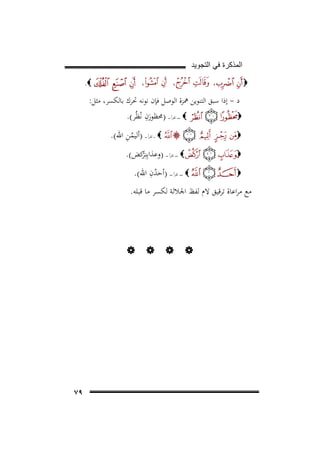 المذكرة في التجويد
﴿أَنِ ٱضْرِب﴾، ﴿وَقَالَتِ ٱخْرُجْ﴾، ﴿أَنِ ٱمْشُوا۟﴾، ﴿أَنِ ٱصْنَعِ ٱلْفُلْكَ﴾.
د - إذا سبق التنوين همزة الوصل فإن نونه تحرك بالكسر، مثل:
﴿مَحْظُورًا ۝ ٱنظُرْ﴾ - (محظورَنِ نْظُر).
﴿مِّن رِّجْزٍ أَلِيمٌ ۝ ٱللَّهُ﴾ - (أليمُنِ الله).
﴿وَعَذَابٍ ۝ ٱرْكُضْ﴾ - (وعذابِنِرْكض).
﴿أَحَدٌ ۝ ٱللَّهُ﴾ - (أحدُنِ الله).
مع مراعاة ترقيق لام لفظ الجلالة لكسر ما قبله.
٧٩